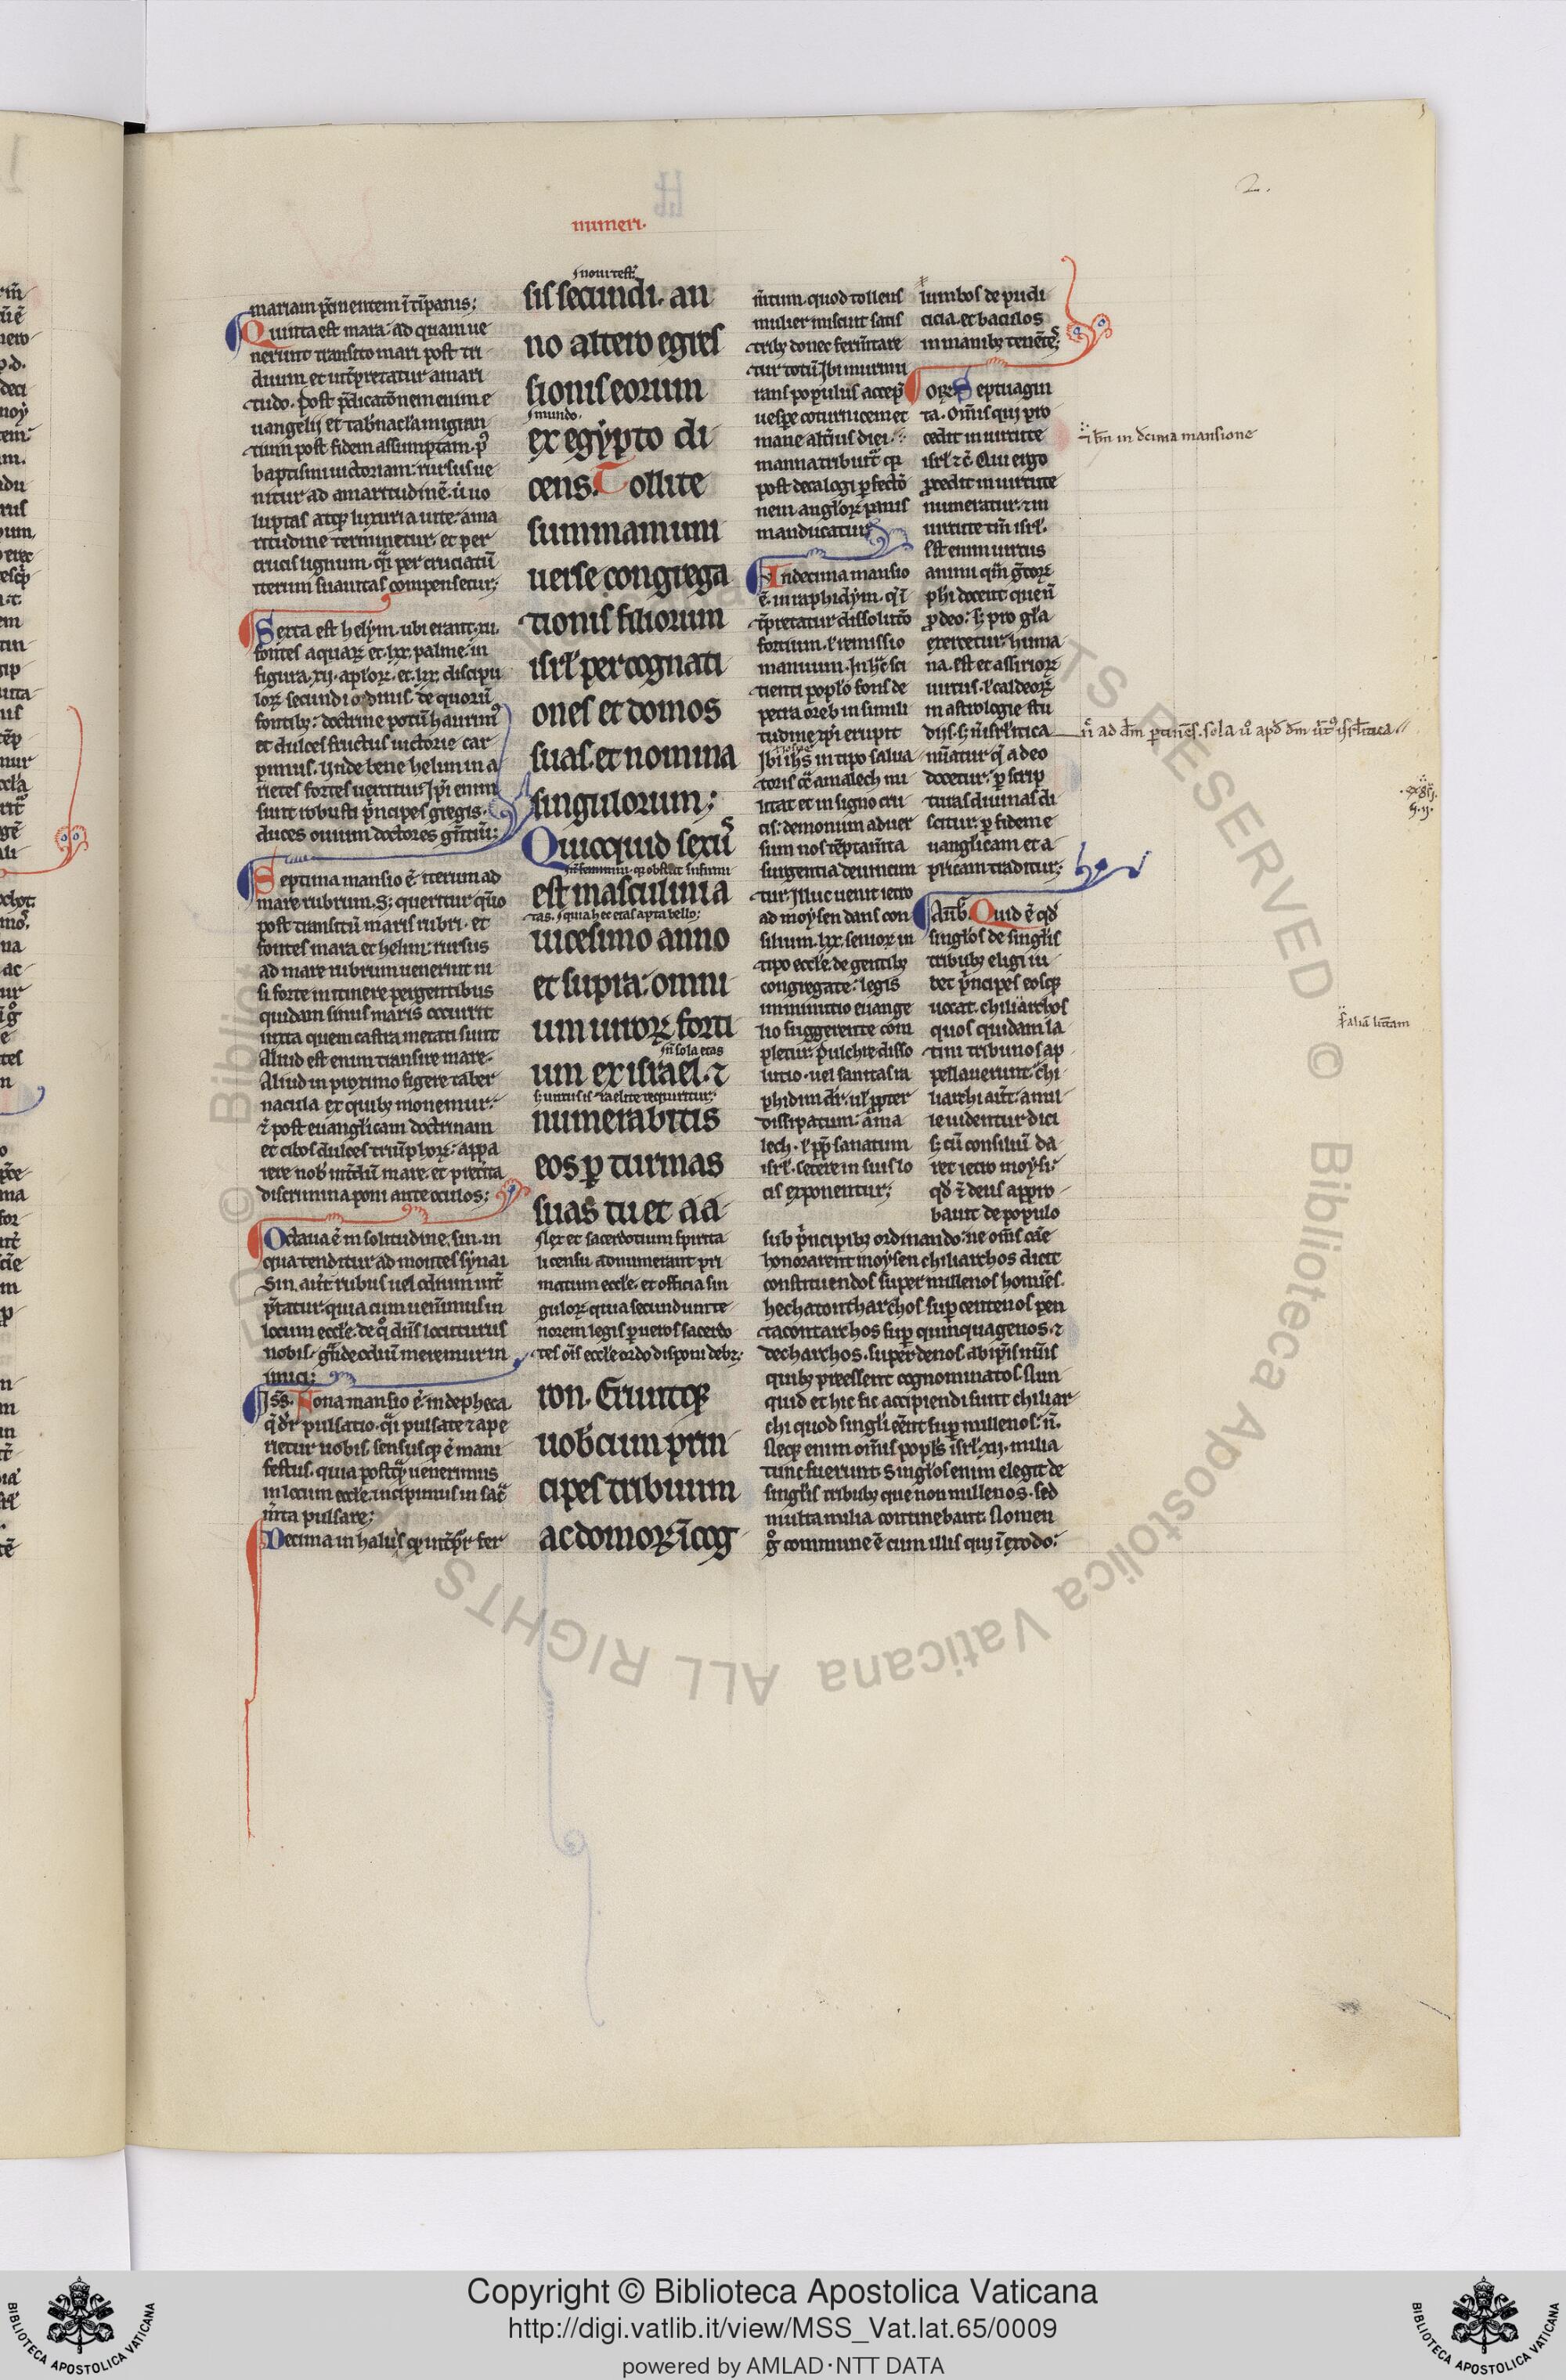 numeri.
2.
mariam p̃cinentem ĩ tĩpanis;
Quinta est mara. ad quam ue
nerunt transito mari post tri
duum et int̃pretatur amari
tudo. post p̃dicatõnem enim e
uangelij et tab̃nacl̃a migran
tium post fidem assumptam. p̱ᷣ
baptismi uictoriam. rursus ue
nitur ad amaritudinẽ. ụt uo
luptas atq; luxuria uite. ama
ritudine terminetur. et per
crucis lignum. q̃i per cruciatũ
iterum suauitas compensetur;
Sexta est helym. ubi erant .xii.
fontes aquaꝝ et .lxx. palme. in
figura .xij. apl̃oꝝ. et .lxx. discipu
loꝝ secundi ordinis. de quorũ
fontibꝫ doctrine potũ haurimꝰ
et dulces fructus uictorie car
pimus. Vnde bene helim in a
rietes fortes uertitur. Ip̃i enim
sunt robusti p̃ncipes gregis.
duces ouium doctores gñtiũ;
Septima mansio ẽ. iterum ad
mare rubrum. S; queritur q̃uo
post transitũ maris rubri. et
fontes mara et helim. rursus
ad mare rubrum uenerint ni
si forte in itinere pergentibus
quidam sinus maris occurrit
iuxta quem castra metati sunt
Aliud est enim transire mare.
Aliud in proximo figere taber
nacula. ex quibꝫ monemur.
ꝫ post euanglicam doctrinam
et cibos dulces triũphoꝝ. appa
rere nob̃ int̃dũ mare. et pret̃ita
discrimina poni ante oculos;
Octaua ẽ in solitudine. sin. in
qua tenditur ad montes synai
Sin. aut̃ rubus uel odium int̃
p̃tatur. quia cum uenĩmus in
locum eccl̃e. de q̊ dñs locuturus
nobis. g̃nde odiũ meremur in
imici;
Is͞s. Nona mansio ẽ. in depheca
q̃ d̃r pulsatio. q̃i pulsate ⁊ ape
rietur uobis. sensusq; ẽ mani
festus. quia postq̃ uenerimus
in locum eccl̃e. incipimus in sac̃
m̃ta pulsare;
Decima in halus. q̃ int̃p̃r fer
.s. noui test̃.
sis secundi. an
no altero egres
sionis eorum
.s. mundo.
ex egypto di
cens. Tollite
summam uni
uerse congrega
tionis filiorum
isrl̃ per cognati
ones et domos
suas. et nomina
singulorum;
Quicquid sexũs
est masculini a
tas. s. quia hec etas apta bello;
uicesimo anno
et supra. omni
um uiroꝝ forti
nõ sola etas
um ex israel. ⁊
s; uirtus isr̃aelite requiritur;
numerabitis
eos ꝑ turmas
suas tu et aa
lex et sacerdotium spirita
li censu. adnumerant pri
matum eccl̃e. et officia sin
guloꝝ. quia secundum te
norem legis ꝑ ueros sacerdo
tes oĩs eccl̃e ordo disponi debꝫ;
ron. Eruntq;
uob̃cum prin
cipes tribuum
ac domoꝝ ĩ cog
m̃tum. quod tollens
mulier miscuit satis
tribꝫ donec ferm̃tare
tur totũ. Ibi murmu
rans populus accep̃
uesꝑe coturnicem et
mane alt̃ius diei.
manna tribuit̃. q̃
post decalogi ꝑfectõ
nem angl̃oꝝ panis
manducatur;
Undecima mansio
ẽ. in raphidym. q̃ ĩ
t̃pretatur dissolutõ
fortium. l̃ remissio
manuum. In hẽ sci
tienti popl̃o fons de
petra oreb in simili
tudinẽ xp̃i erupit
Ibi ih̃s in tipo salua
toris cõ amalech mi
litat et in signo cru
cis. demonum aduer
sum nos tẽptam̃ta
surgentia deuincun
tur. Illuc uenit ietro
ad moysen dans con
silium. lxx. senioꝝ in
tipo eccl̃e. de gentibꝫ
congregate. legis
imminutio euange
lio suggerente com
pletur. Pulchre disso
lutio. uel sanitas ra
phidim d̃r. ul̃ p̃pter
dissipatum. ama
lech. l̃ p̃p̃ sanatum
isrl̃. cetere in suis lo
cis exponentur;
lumbos de pudi
cicia. et baculos
in manibꝫ tenẽtes;
ORG. Septuagin
ta. Om̃is qui pro
cedit in uirtute
isrl̃ ⁊c̃. Qui ergo
ꝓcedit in uirtute
numeratur. ⁊ in
uirtute tm̃ isrl̃.
Est enim uirtus
animi q̃m g̃coꝝ
phi docent que ñ
ꝓ deo. s; pro gl̃a
exercetur huma
na. est et assirioꝝ
uirtus. l̃ caldeoꝝ
in astrologie stu
dijs. s; ñ isrl̃itica
nũatur q̃ a deo
docetur. ꝑ scrip
turas diuinas di
scitur. ꝑ fidem e
uanglicam et a
p̃licam traditur;
Aũb̃. Quid ẽ qd̃
singl̃os de singl̃is
tribubꝫ eligi iu
bet p̃ncipes eosq;
uocat. chiliarchos
quos quidam la
tini tribunos ap
pellauerunt. chi
liarchi aut̃. a mil
le uidentur dici
s; cũ consiliũ da
ret ietro moysi.
qd̃ ⁊ deus appro
bauit de populo
sub p̃ncipibꝫ ordinando. ne om̃s cãe
honorarent moysen chiliarchos dicit
constituendos super millenos homĩes.
hechatontharchos suꝑ centenos pen
tacontarchos suꝑ quinquagenos. ⁊
decharchos. super denos ab ip̃is nũis
quibꝫ preessent cognominatos. Nun
quid et hic sic accipiendi sunt chiliar
chi quod singl̃i eẽnt suꝑ millenos. ñ.
Neq; enim om̃is popl̃s isrl̃ .xij. milia
tunc fuerunt. Singl̃os enim elegit de
singl̃is tribubꝫ que non millenos. sed
multa milia continebant. Nomen
g̊ commune ẽ cum illis qui ĩ exodo.
ĩ bñ in decima mansione
ñ ad dm̃ ꝑtinẽs. sola ũ apd̃ dm̃ uirtꝰ ysrl̃itica
alia littam
Copyright © Biblioteca Apostolica Vaticana
http://digi.vatlib.it/view/MSS_Vat.lat.65/0009
powered by AMLAD·NTT DATA
BIBLIOTECA APOSTOLICA VATICANA
BIBLIOTECA APOSTOLICA VATICANA
© Biblioteca Apostolica Vaticana ALL RIGHTS RESERVED